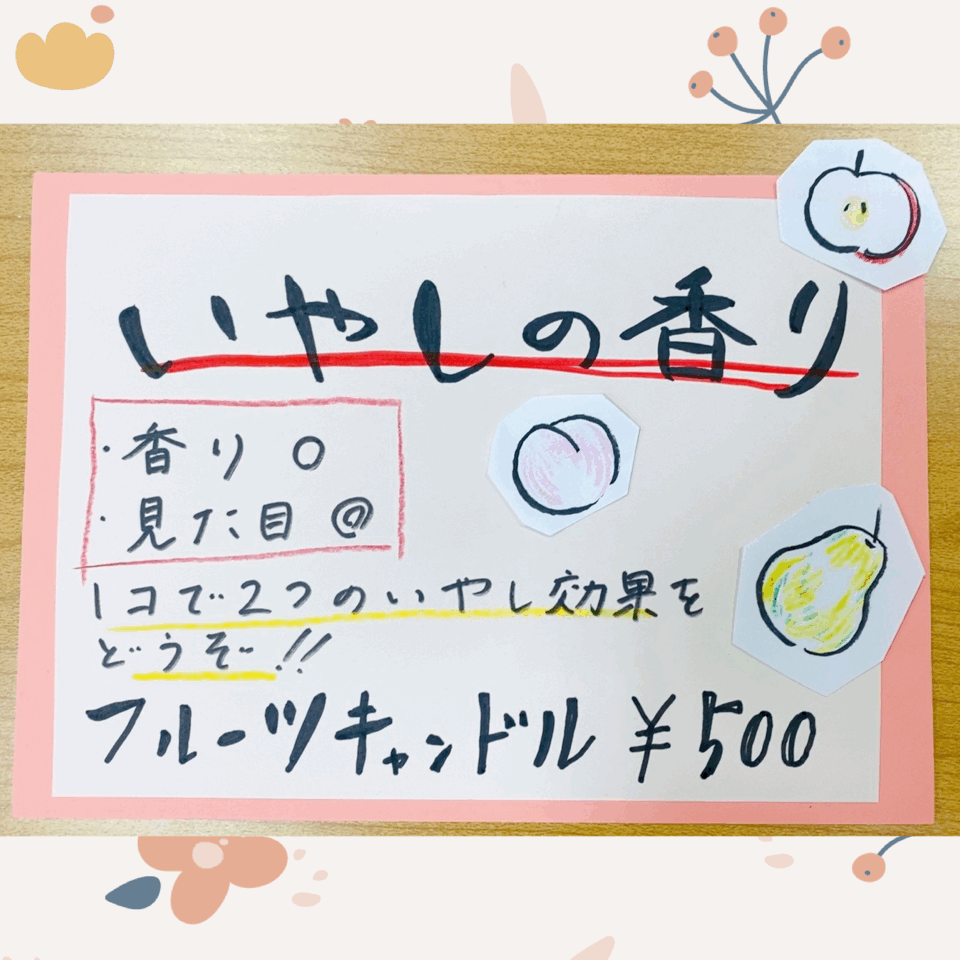 いやしの香り
・香り ○
・見た目 ◎
1コで2つのいやし効果を
どうぞ!!
フルーツキャンドル ¥500